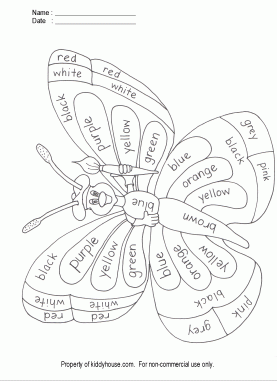 Name : 
Date : 
red
red
white
white
black
purple
yellow
green
blue
orange
yellow
black
grey
pink
brown
blue
black
purple
yellow
green
blue
orange
yellow
black
white
white
red
red
grey
pink
Property of kiddyhouse.com. For non-commercial use only.